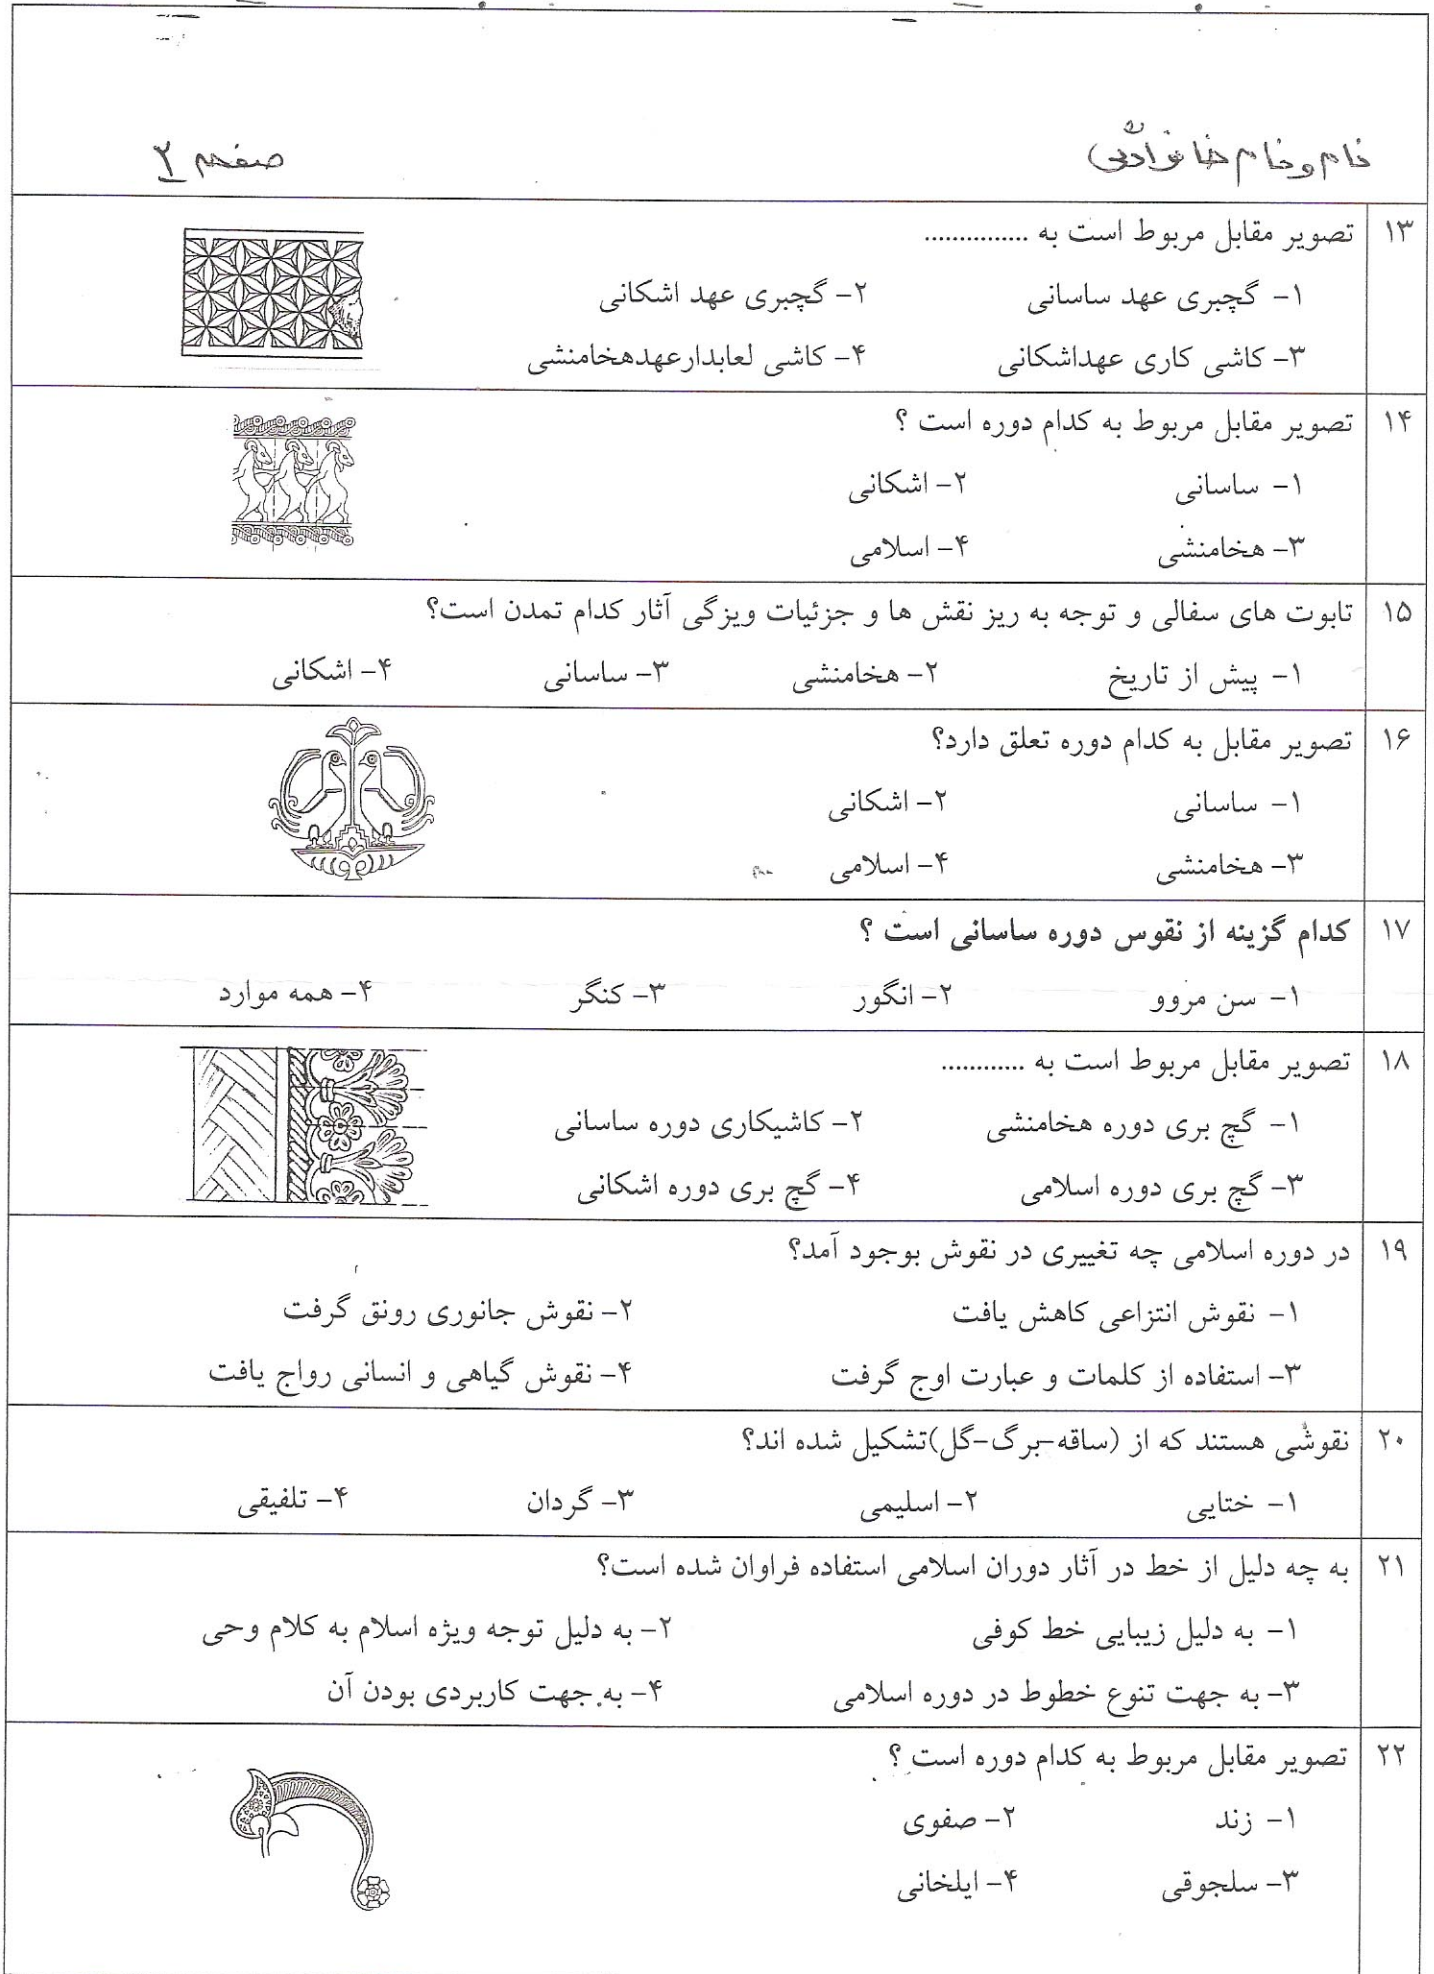 نام و نام خانوادگی
صفحه ۲
۱۳ تصویر مقابل مربوط است به ...............
۱- گچبری عهد ساسانی ۲- گچبری عهد اشکانی
۳- کاشی کاری عهداشکانی ۴- کاشی لعابدارعهدهخامنشی
۱۴ تصویر مقابل مربوط به کدام دوره است ؟
۱- ساسانی ۲- اشکانی
۳- هخامنشی ۴- اسلامی
۱۵ تابوت های سفالی و توجه به ریز نقش ها و جزئیات ویزگی آثار کدام تمدن است؟
۱- پیش از تاریخ ۲- هخامنشی ۳- ساسانی ۴- اشکانی
۱۶ تصویر مقابل به کدام دوره تعلق دارد؟
۱- ساسانی ۲- اشکانی
۳- هخامنشی ۴- اسلامی
۱۷ کدام گزینه از نقوس دوره ساسانی است ؟
۱- سن مروو ۲- انگور ۳- کنگر ۴- همه موارد
۱۸ تصویر مقابل مربوط است به ............
۱- گچ بری دوره هخامنشی ۲- کاشیکاری دوره ساسانی
۳- گچ بری دوره اسلامی ۴- گچ بری دوره اشکانی
۱۹ در دوره اسلامی چه تغییری در نقوش بوجود آمد؟
۱- نقوش انتزاعی کاهش یافت ۲- نقوش جانوری رونق گرفت
۳- استفاده از کلمات و عبارت اوج گرفت ۴- نقوش گیاهی و انسانی رواج یافت
۲۰ نقوشی هستند که از (ساقه-برگ-گل)تشکیل شده اند؟
۱- ختایی ۲- اسلیمی ۳- گردان ۴- تلفیقی
۲۱ به چه دلیل از خط در آثار دوران اسلامی استفاده فراوان شده است؟
۱- به دلیل زیبایی خط کوفی ۲- به دلیل توجه ویژه اسلام به کلام وحی
۳- به جهت تنوع خطوط در دوره اسلامی ۴- به جهت کاربردی بودن آن
۲۲ تصویر مقابل مربوط به کدام دوره است ؟
۱- زند ۲- صفوی
۳- سلجوقی ۴- ایلخانی